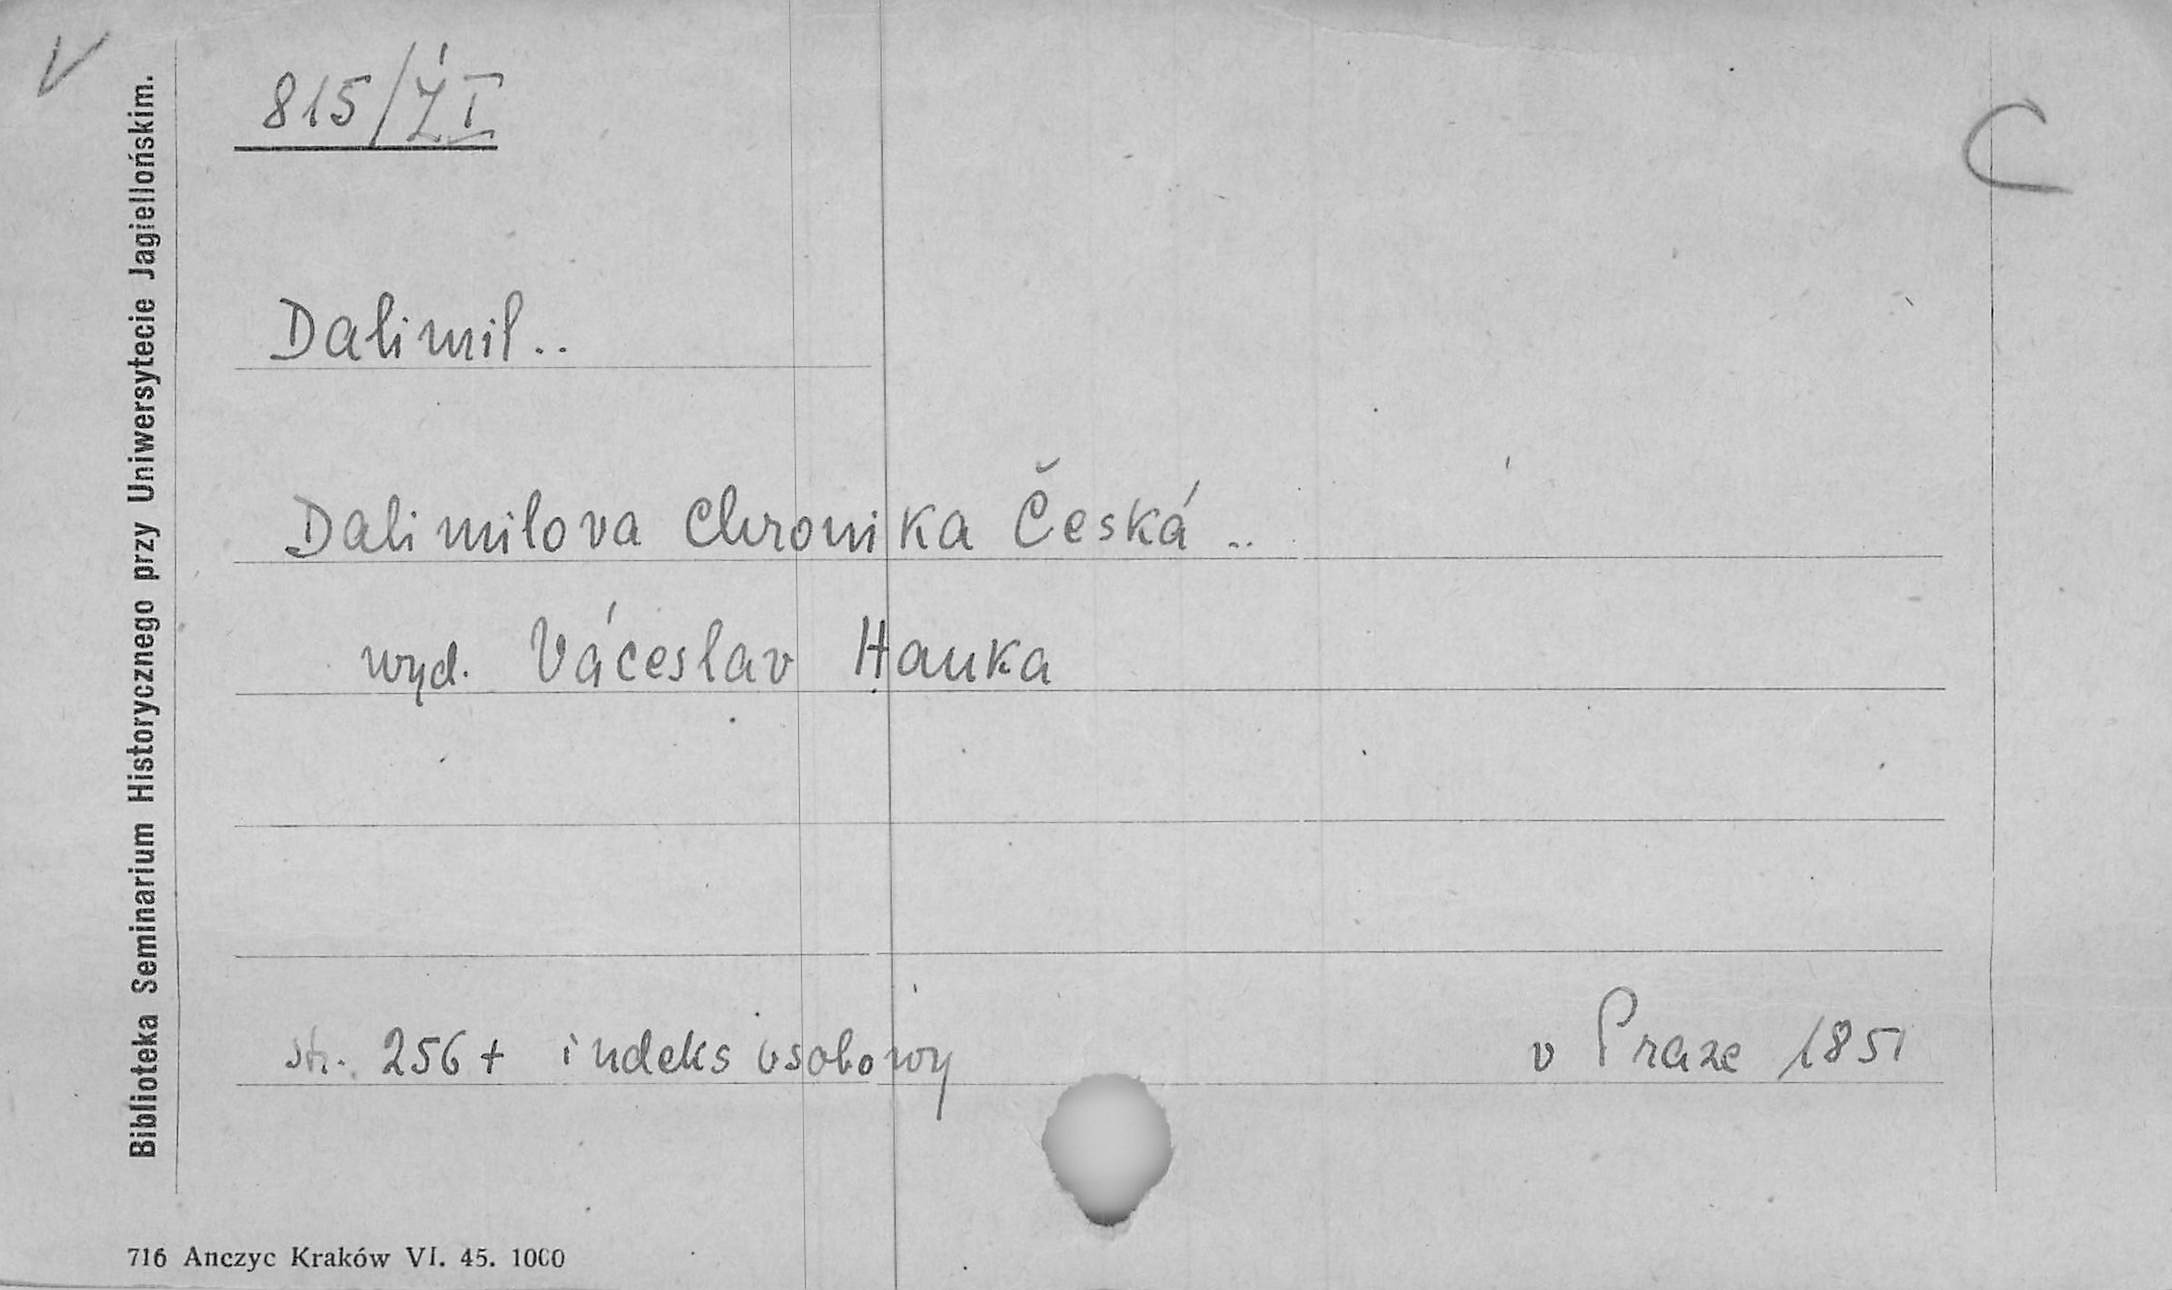 V
815/Ż I
C
Dalimil..
Dalimilova Chronika Česká ..
wyd. Váceslav Hanka
str. 256 + indeks osobowy
v Praze 1851
Biblioteka Seminarium Historycznego przy Uniwersytecie Jagiellońskim.
716 Anczyc Kraków VI. 45. 1000